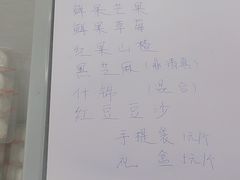 鲜果芒果
鲜果草莓
红果山楂
黑芝麻
什锦（混合）
红豆豆沙
手提袋1元/个
礼盒1元/个